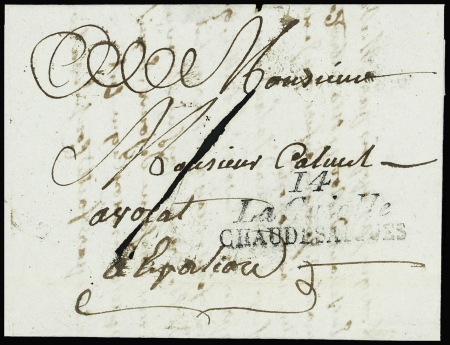 Monsieur
Monsieur Calmel
avocat
14
La Guiolle
CHAUDESAIGUES